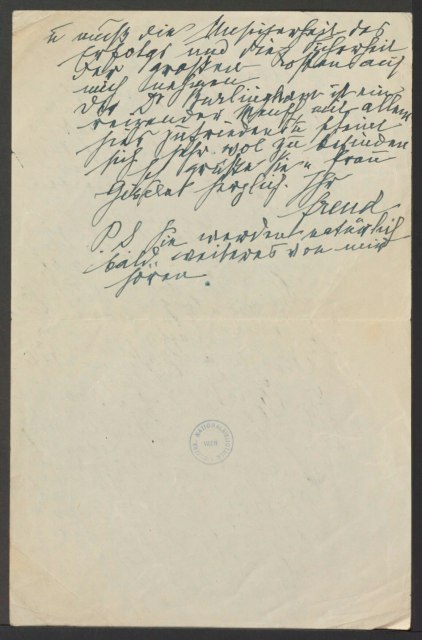 u muß die Unsicherheit des
Erfolgs und die Sicherheit
der großen Kosten auf
mich nehmen
Der Dr Burlingham ist ein
reizender Mensch mit allem
hier zufrieden u scheint
sich sehr wol zu befinden
Ich grüße Sie u Frau
herzlich. Ihr
Freud
P.S. Sie werden natürlich
bald weiteres von mir
hören
NATIONALBIBLIOTHEK
WIEN